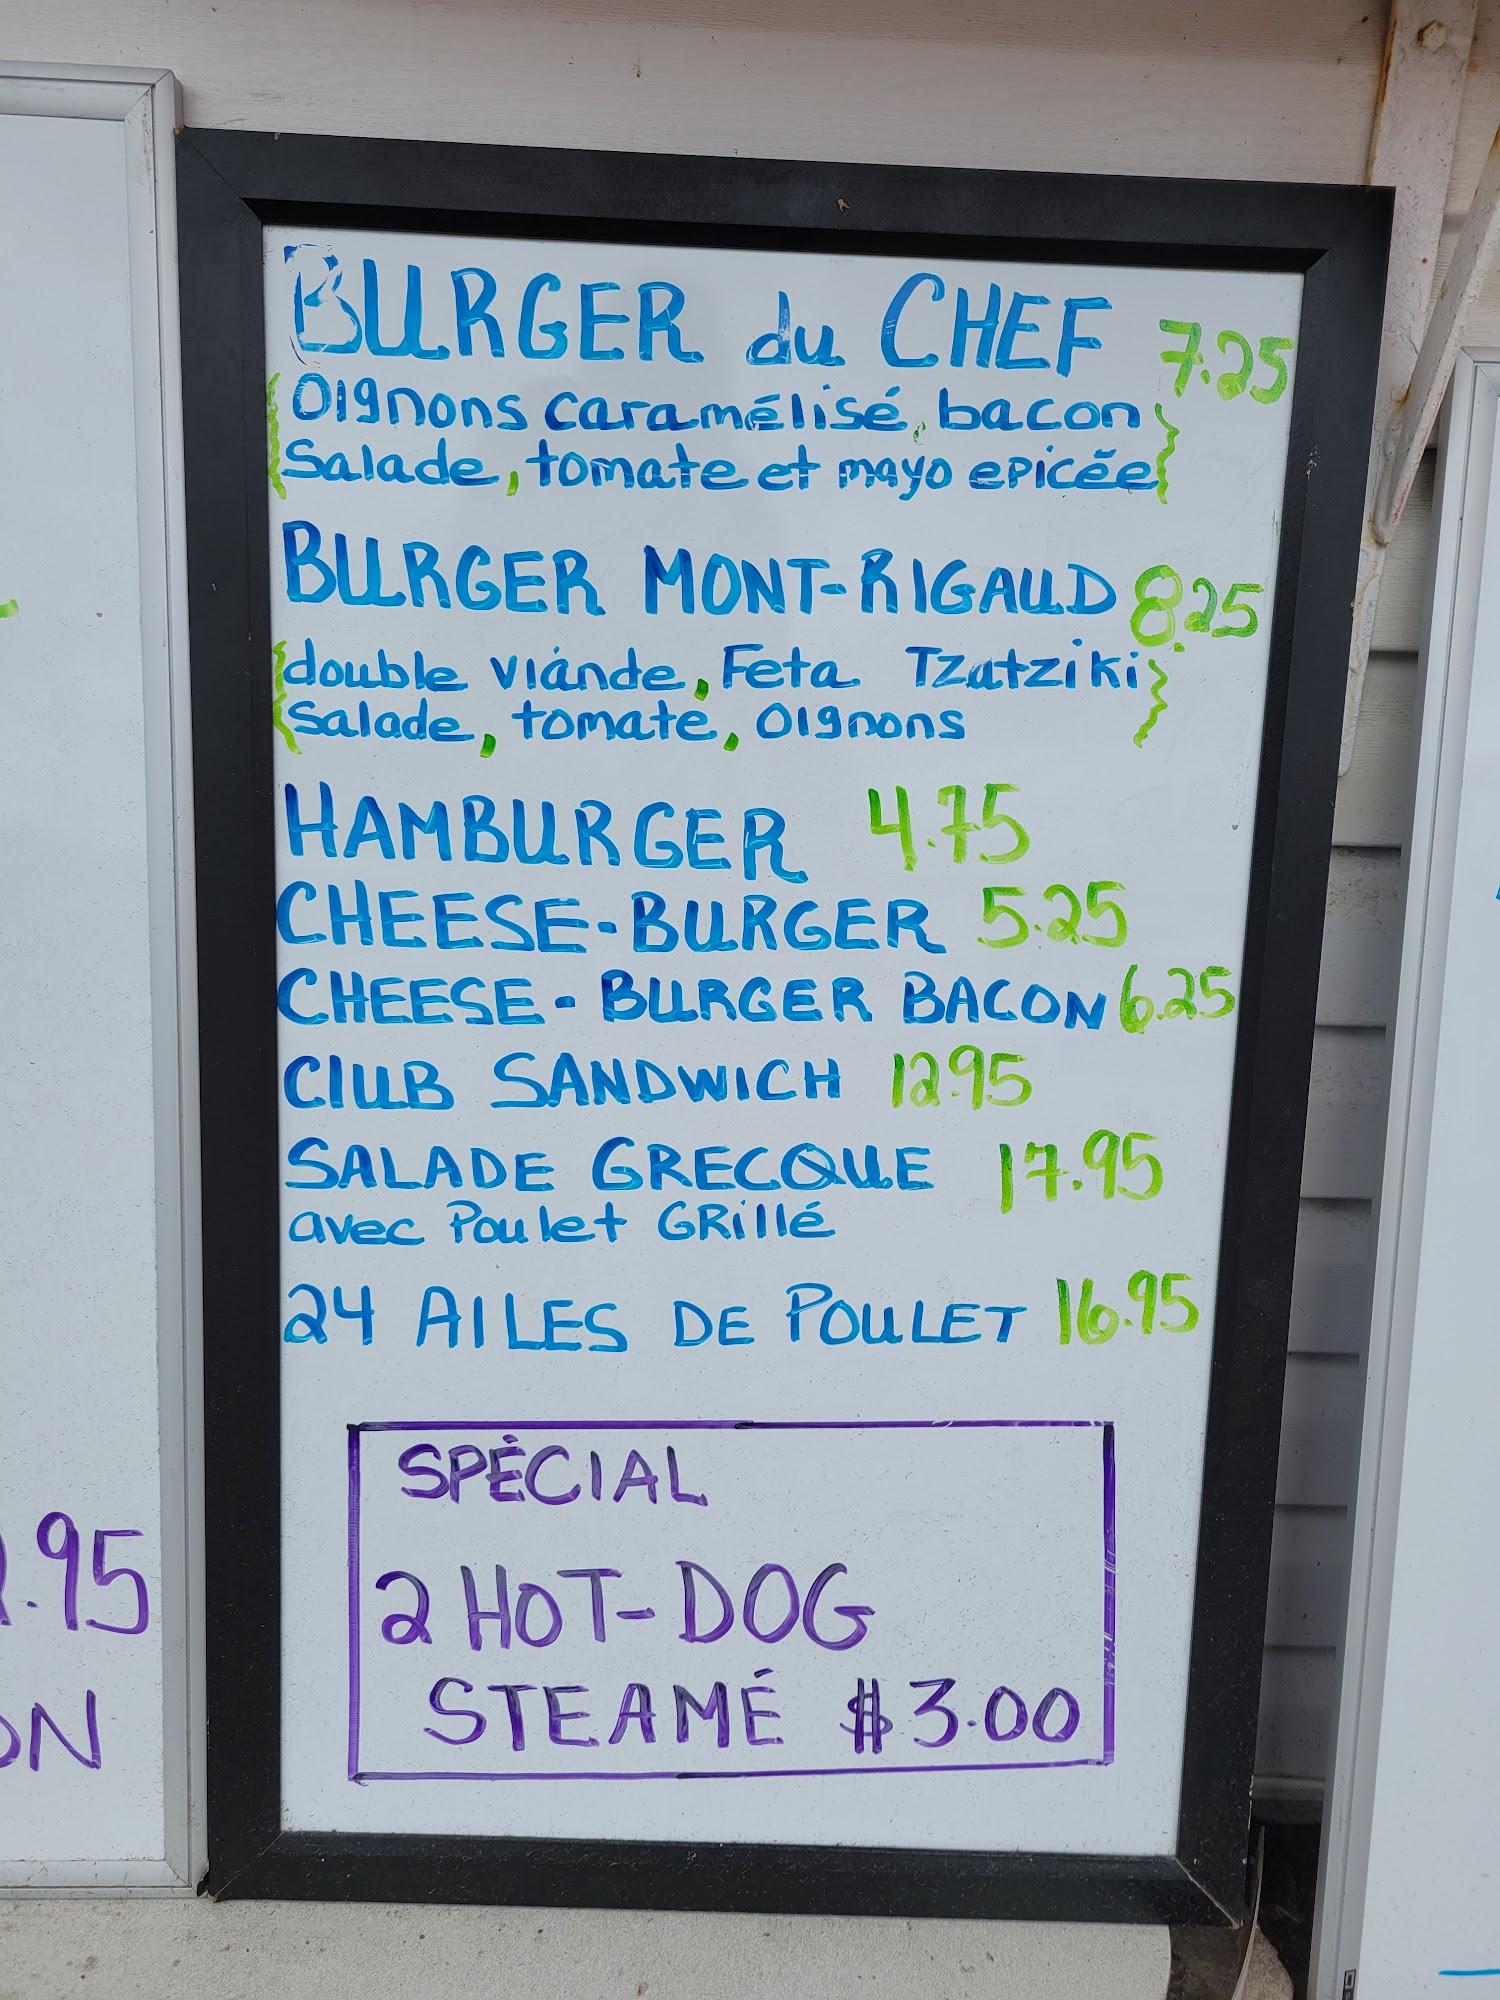 BURGER du CHEF 7.25
Oignons caramélisé, bacon
Salade, tomate et mayo epicée
BURGER MONT-RIGAUD 8.25
double viande, Feta Tzatziki
salade, tomate, oignons
HAMBURGER 4.75
CHEESE-BURGER 5.25
CHEESE-BURGER BACON 6.25
CLUB SANDWICH 12.95
SALADE GRECQUE 17.95
avec Poulet GRillé
24 AILES DE POULET 16.95
SPÉCIAL
2 HOT-DOG
STEAMÉ $3.00
.95
ON